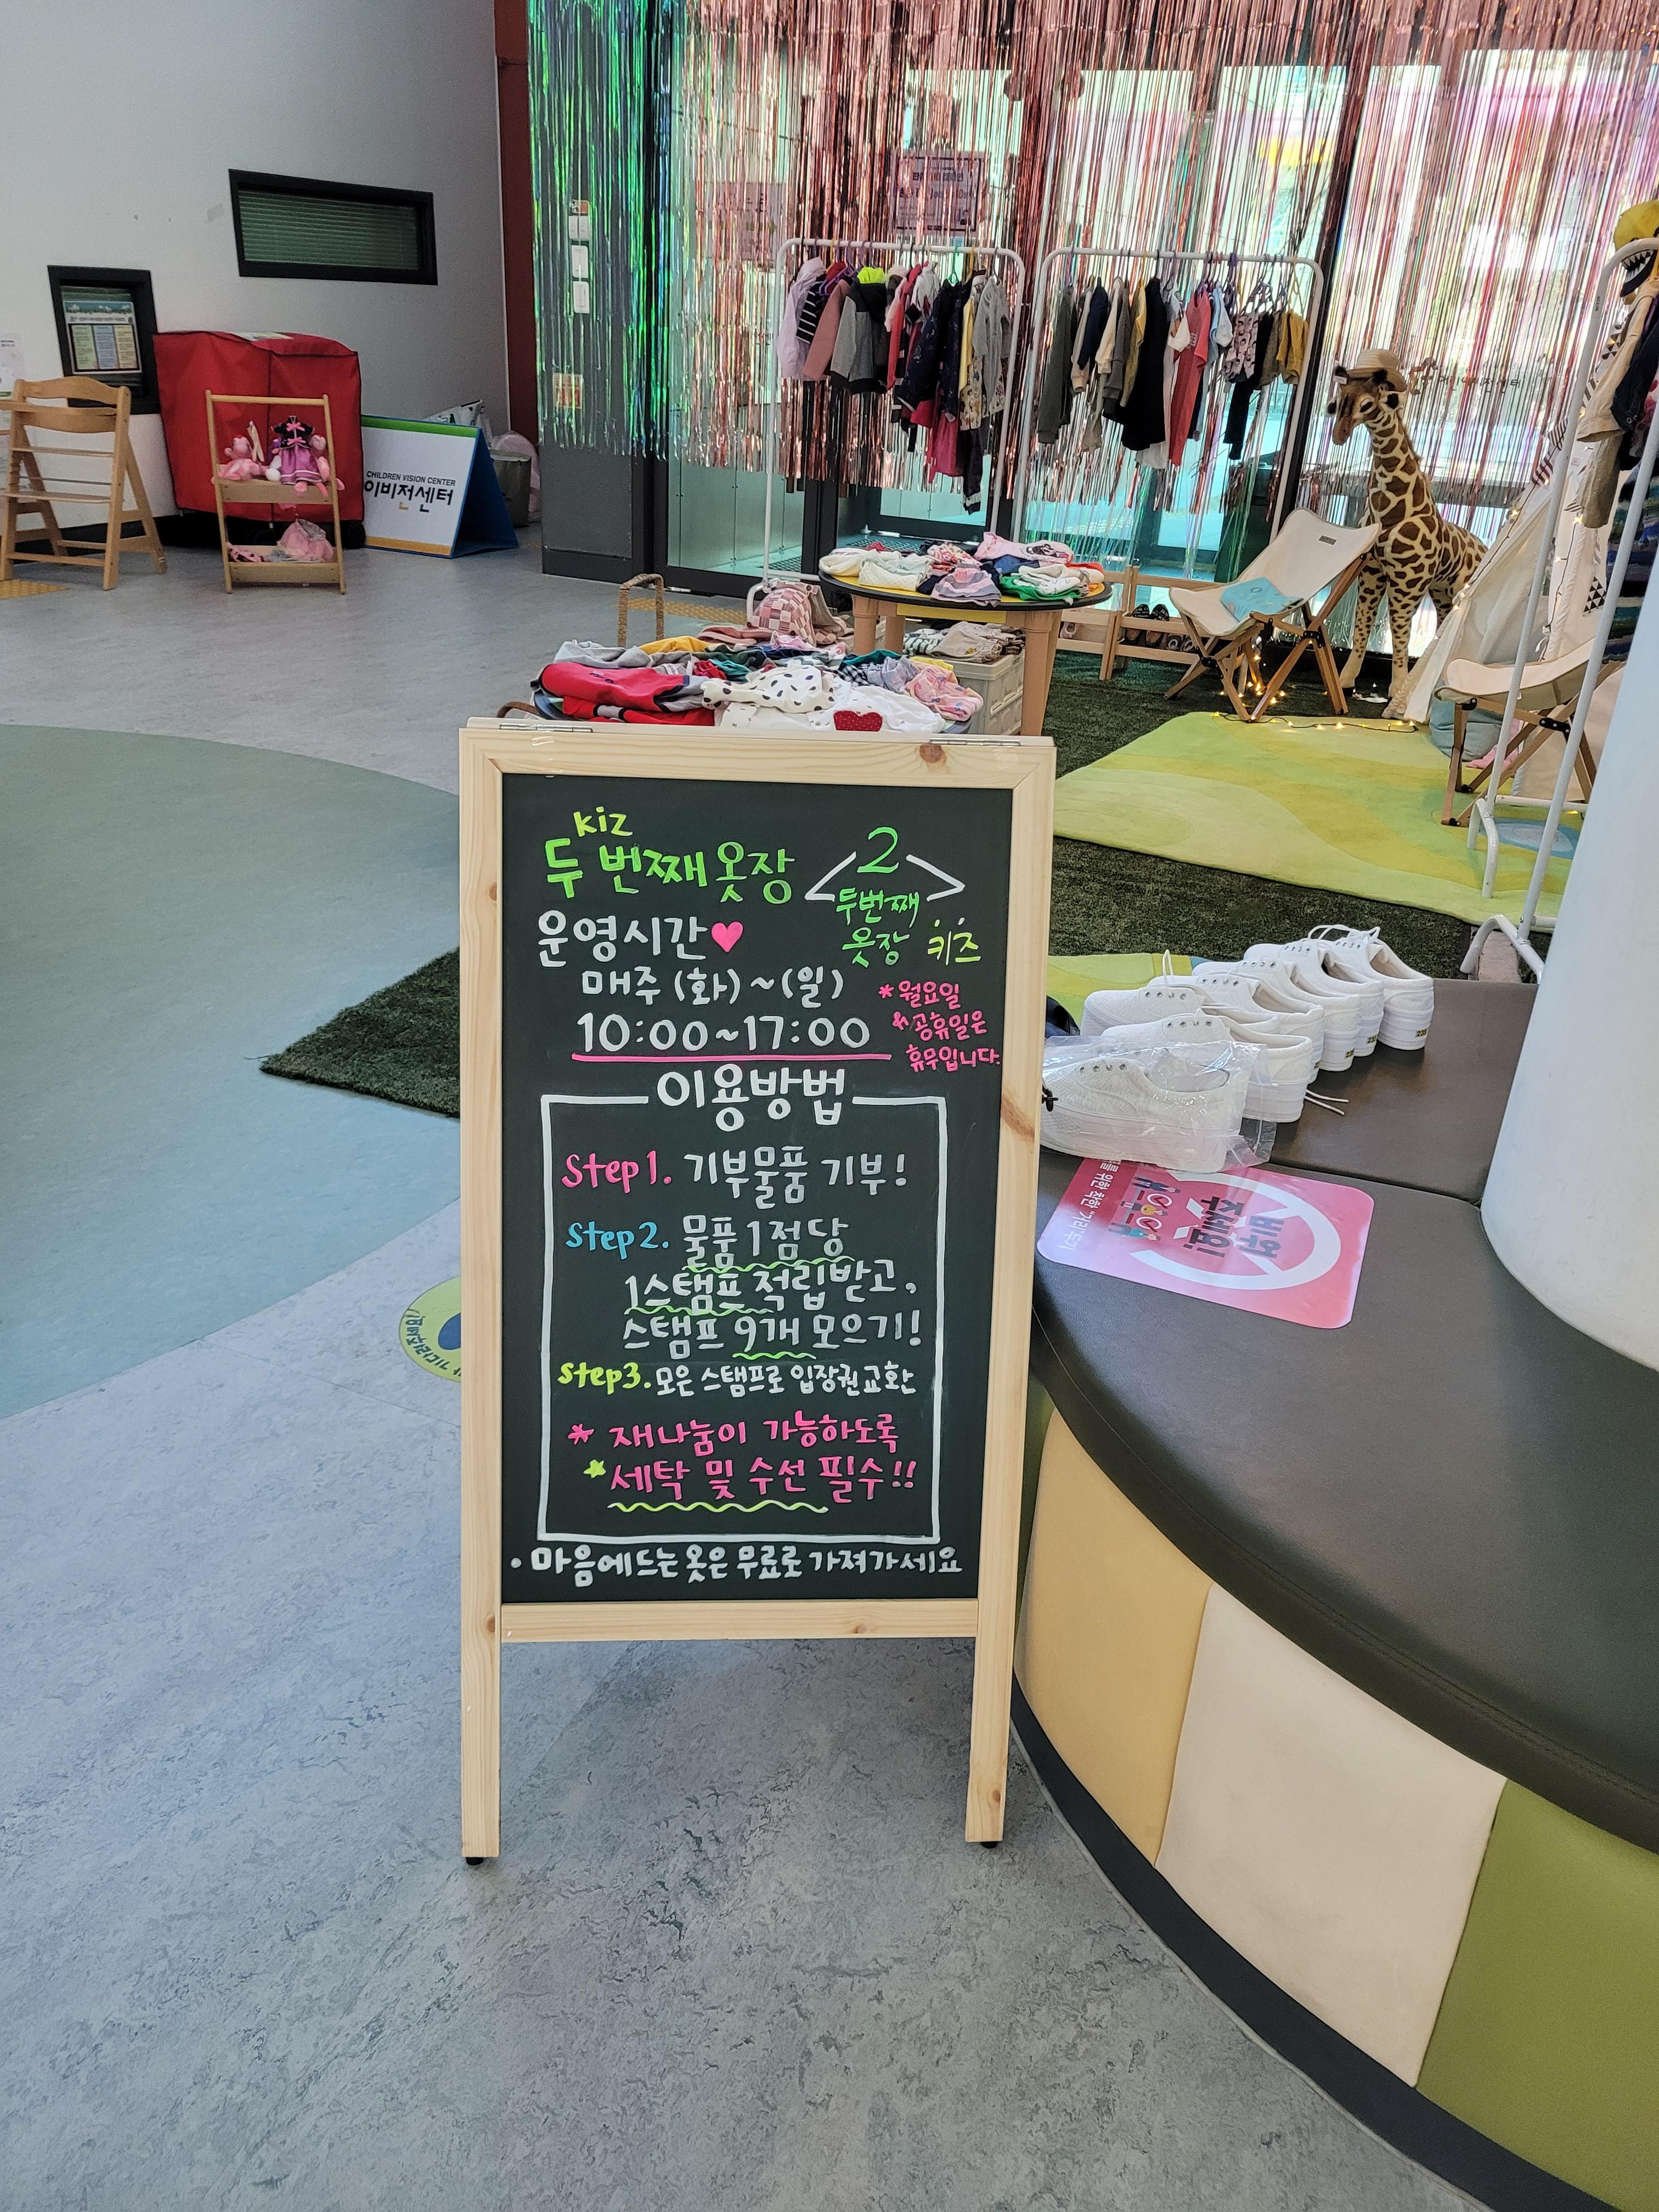 CHILDREN VISION CENTER
이비전센터
kiz
두 번째 옷장
2
두번째
옷장 키즈
운영시간
매주 (화) ~ (일)
10:00~17:00
*월요일
&공휴일은
휴무입니다.
이용방법
Step1. 기부물품 기부!
Step2. 물품 1점당
1스탬프 적립받고,
스탬프 9개 모으기!
Step3. 모은 스탬프로 입장권 교환
* 재나눔이 가능하도록
세탁 및 수선 필수!!
• 마음에드는 옷은 무료로 가져가세요
비워
주세요!
위한 착한 거리두기
기다려주세요!